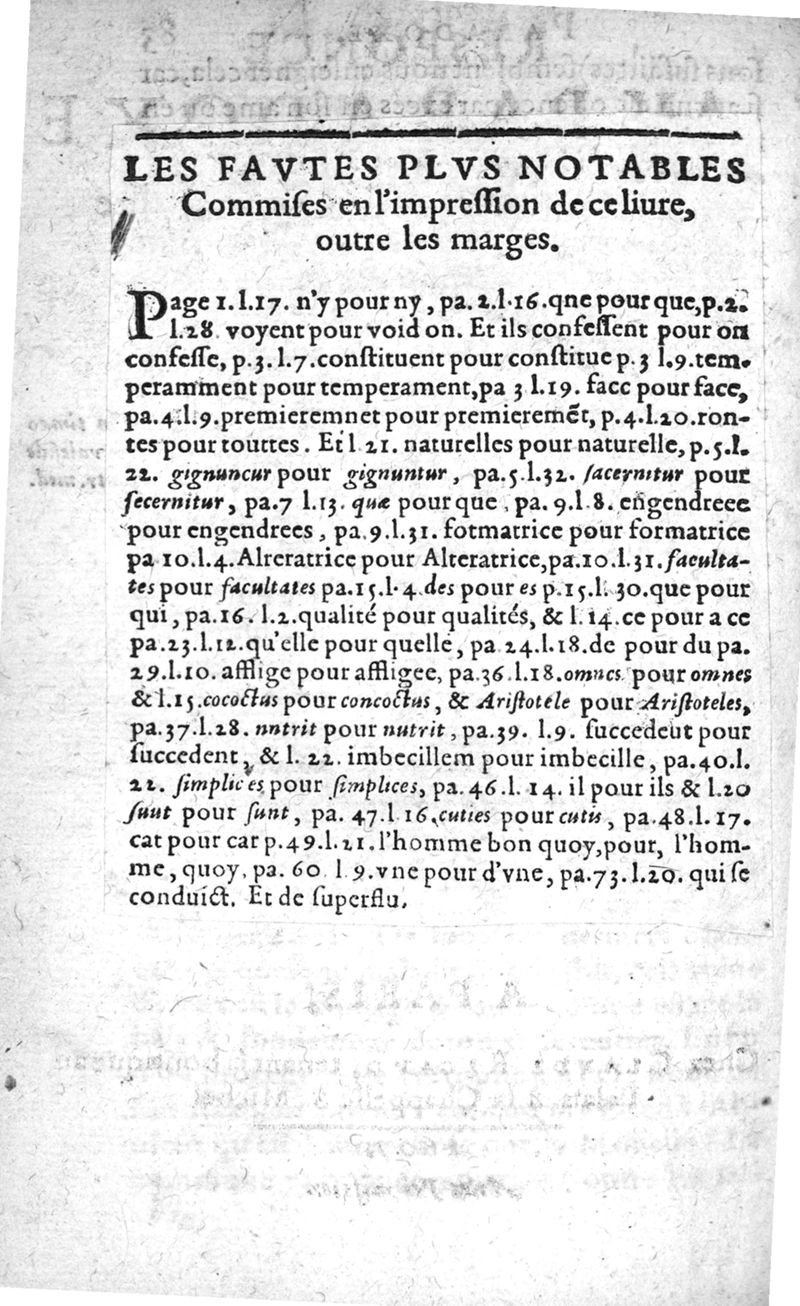 LES FAVTES PLVS NOTABLES
Commiſes en l'impreſſion de ce liure,
outre les marges.
Page 1.l.17. n'y pour ny, pa.2.l.16.qne pour que,p.2.
l.28. voyent pour void on. Et ils confeſſent pour on
confeſſe, p.3.l.7.conſtituent pour conſtitue p.3 l.9.tem-
peramment pour temperament,pa 3 l.19. facc pour face,
pa.4.l.9.premieremnet pour premieremẽt, p.4.l.20.ron-
tes pour touttes. Et l 21. naturelles pour naturelle, p.5.l.
22. gignuncur pour gignuntur, pa.5.l.32. ſacernitur pour
ſecernitur, pa.7 l.13. quæ pour que, pa. 9.l 8. engendreee
pour engendrees, pa.9.l.31. fotmatrice pour formatrice
pa 10.l.4.Alreratrice pour Alteratrice,pa.10.l.31.faculta-
tes pour facultates pa.15.l.4 des pour es p.15.l.30.que pour
qui, pa.16.l.2.qualité pour qualités, & l.14.ce pour a ce
pa.23.l.12.qu'elle pour quelle, pa 24.l.18.de pour du pa.
29.l.10. afflige pour affligee, pa.36.l.18.omncs pour omnes
& l.15.cococtus pour concoctus, & Ariſtotele pour Ariſtoteles,
pa.37.l.28. nntrit pour nutrit, pa.39. l.9. ſuccedeut pour
ſuccedent, & l. 22. imbecillem pour imbecille, pa.40.l.
22. ſimplic es pour ſimplices, pa. 46.l. 14. il pour ils & l.20
ſuut pour ſunt, pa. 47.l 16.cuties pour cutis, pa.48.l.17.
cat pour car p.49.l.21.l'homme bon quoy,pour, l'hom-
me, quoy, pa. 60 l 9.vne pour d'vne, pa.73.l.20. qui ſe
conduict. Et de ſuperflu.